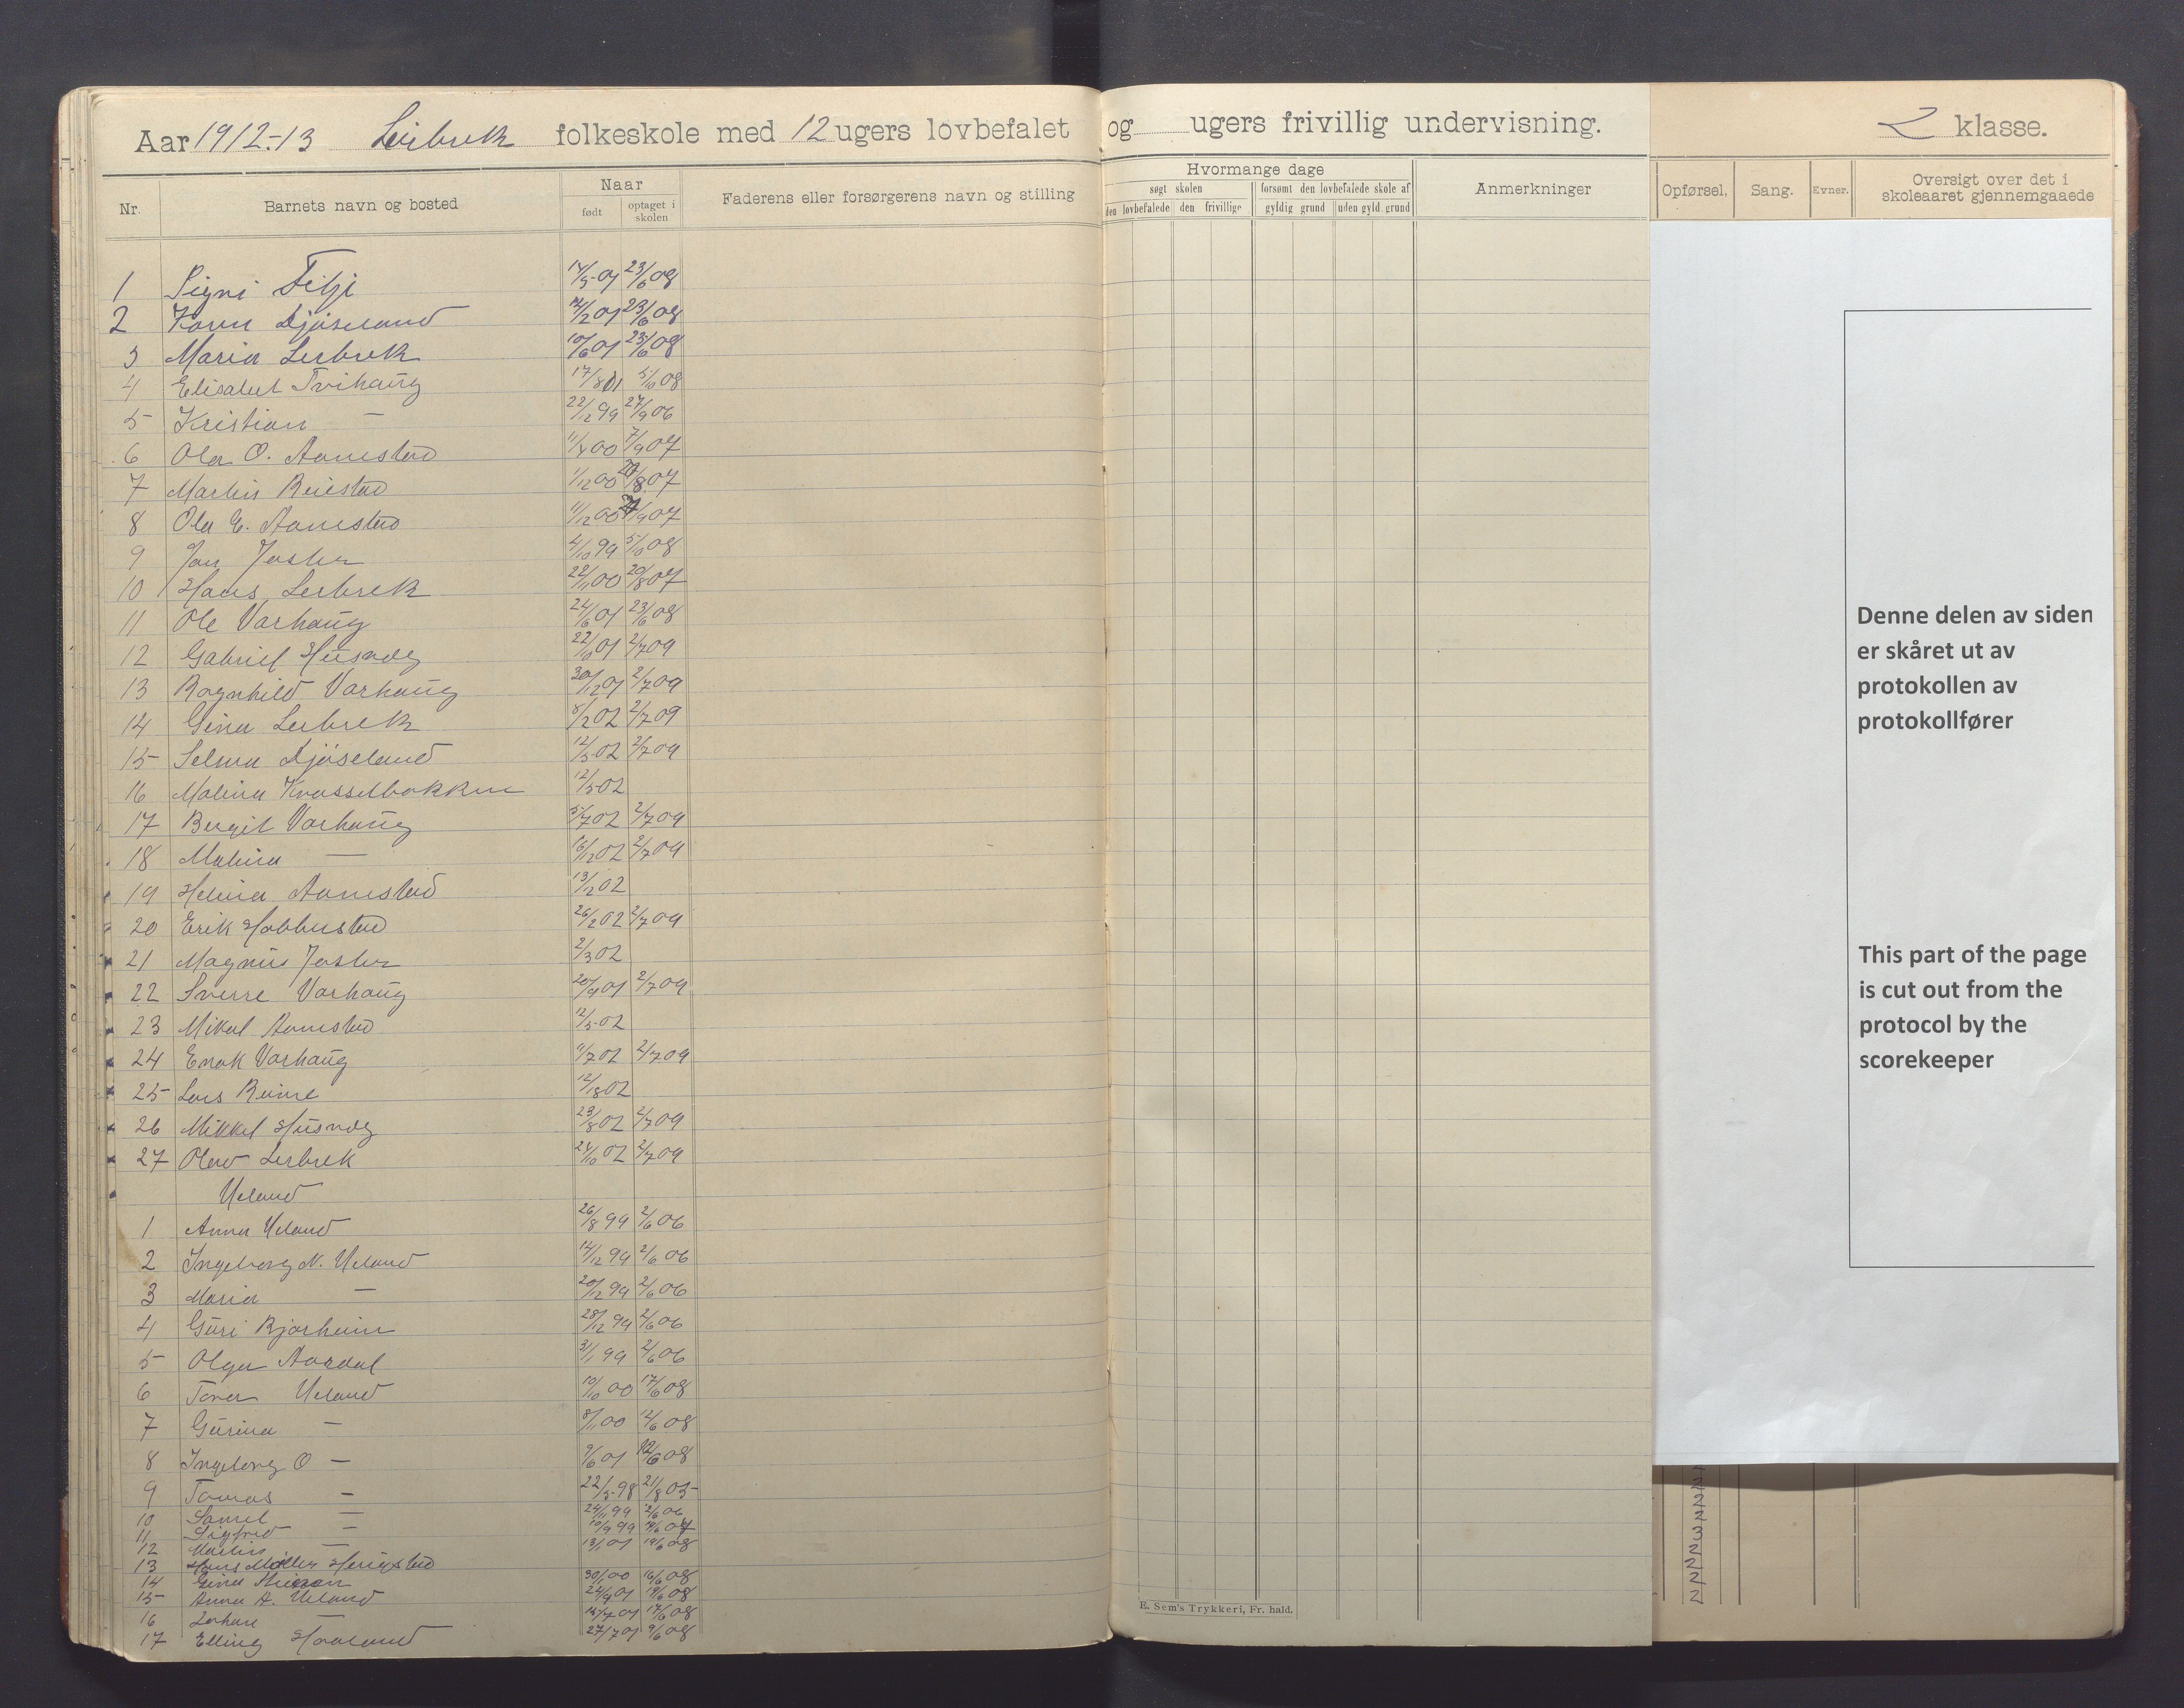 Aar 1912-13 Leibrek folkeskole med 12 ugers lovbefalet og ugers frivillig undervisning. 2 klasse.
Nr. Barnets navn og bosted Naar født optaget i skolen Faderens eller forsørgerens navn og stilling Hvormange dage søgt skolen den lovbefalede den frivillige forsømt den lovbefalede skole af gyldig grund uden gyld. grund Anmerkninger Opførsel. Sang. Evner. Oversigt over det i skoleaaret gjennemgaaede
1 Signi Filje 14/5-01 23/6 08
2 Karen Djøseland 12/2 01 23/6 08
3 Maria Lerbrek 10/6 01 23/6 08
4 Elisabet Tvihaug 17/8 01 5/10 08
5 Kristian — 22/12 99 27/9 06
6 Ola O. Aanestad 00 7/9 07
7 Martin Reiestad 1/12 00 20/8 07
8 Ola E. Aanestad 11/12 00 /9 07
9 Jan 4/10 99 5/10 08
10 Hans Lerbrek 22/11 00 20/8 07
11 Ole Varhaug 24/6 01 23/6 08
12 Gabriel Husveg 22/10 01 2/7 09
13 Ragnhild Varhaug 30/12 01 2/7 09
14 Gina Lerbrek 8/2 02 2/7 09
15 Selma Djøseland 12/5 02 2/7 09
16 Malina Krosselbakken 12/5 02
17 Bergit Varhaug 5/7 02 2/7 09
18 Malina — 16/12 02 2/7 09
19 Helena Aanestad 13/12 02
20 Erik Hobbestad 26/2 02 2/7 09
21 Magnus 2/3 02
22 Sverre Varhaug 20/9 01 2/7 09
23 Mikal Aanestad 12/5-02
24 Enok Varhaug 11/7 02 2/7 09
25 Lars Reime 02
26 Mikkel Husveg 23/8 02 2/7 09
27 Olav Lerbrek 24/10 02 2/7 09
Ueland
1 Anna Ueland 26/8 99 2/6 06
2 Ingeborg N. Ueland 14/12 99 2/6 06
3 Maria — 20/12 99 2/6 06
4 Guri Bjorheim 28/12 99 2/6 06
5 Olga Aardal 31/1 99 2/6 06
6 Tora Ueland 10/10 00 17/6 08
7 Gurina — 8/11 00 12/6 08
8 Ingeborg O — 9/6 01 12/6 08
9 Tomas — 22/5-98 21/8 05
10 Samel — 24/11 99 2/6 06
11 Sigfred — 10/9 99 07
12 Martin — 13/1 01 19/6 08
13 Hans Møller Herigstad
14 Gina 30/1 00 16/6 08
15 Anna A. Ueland 24/9 01 19/6 08
16 17/6 08
17 Elling Haaland 27/7 01 9/6 08
Denne delen av siden
er skåret ut av
protokollen av
protokollfører
This part of the page
is cut out from the
protocol by the
scorekeeper
2
2
3
2
2
2
2
E. Sem's Trykkeri, Fr. hald.